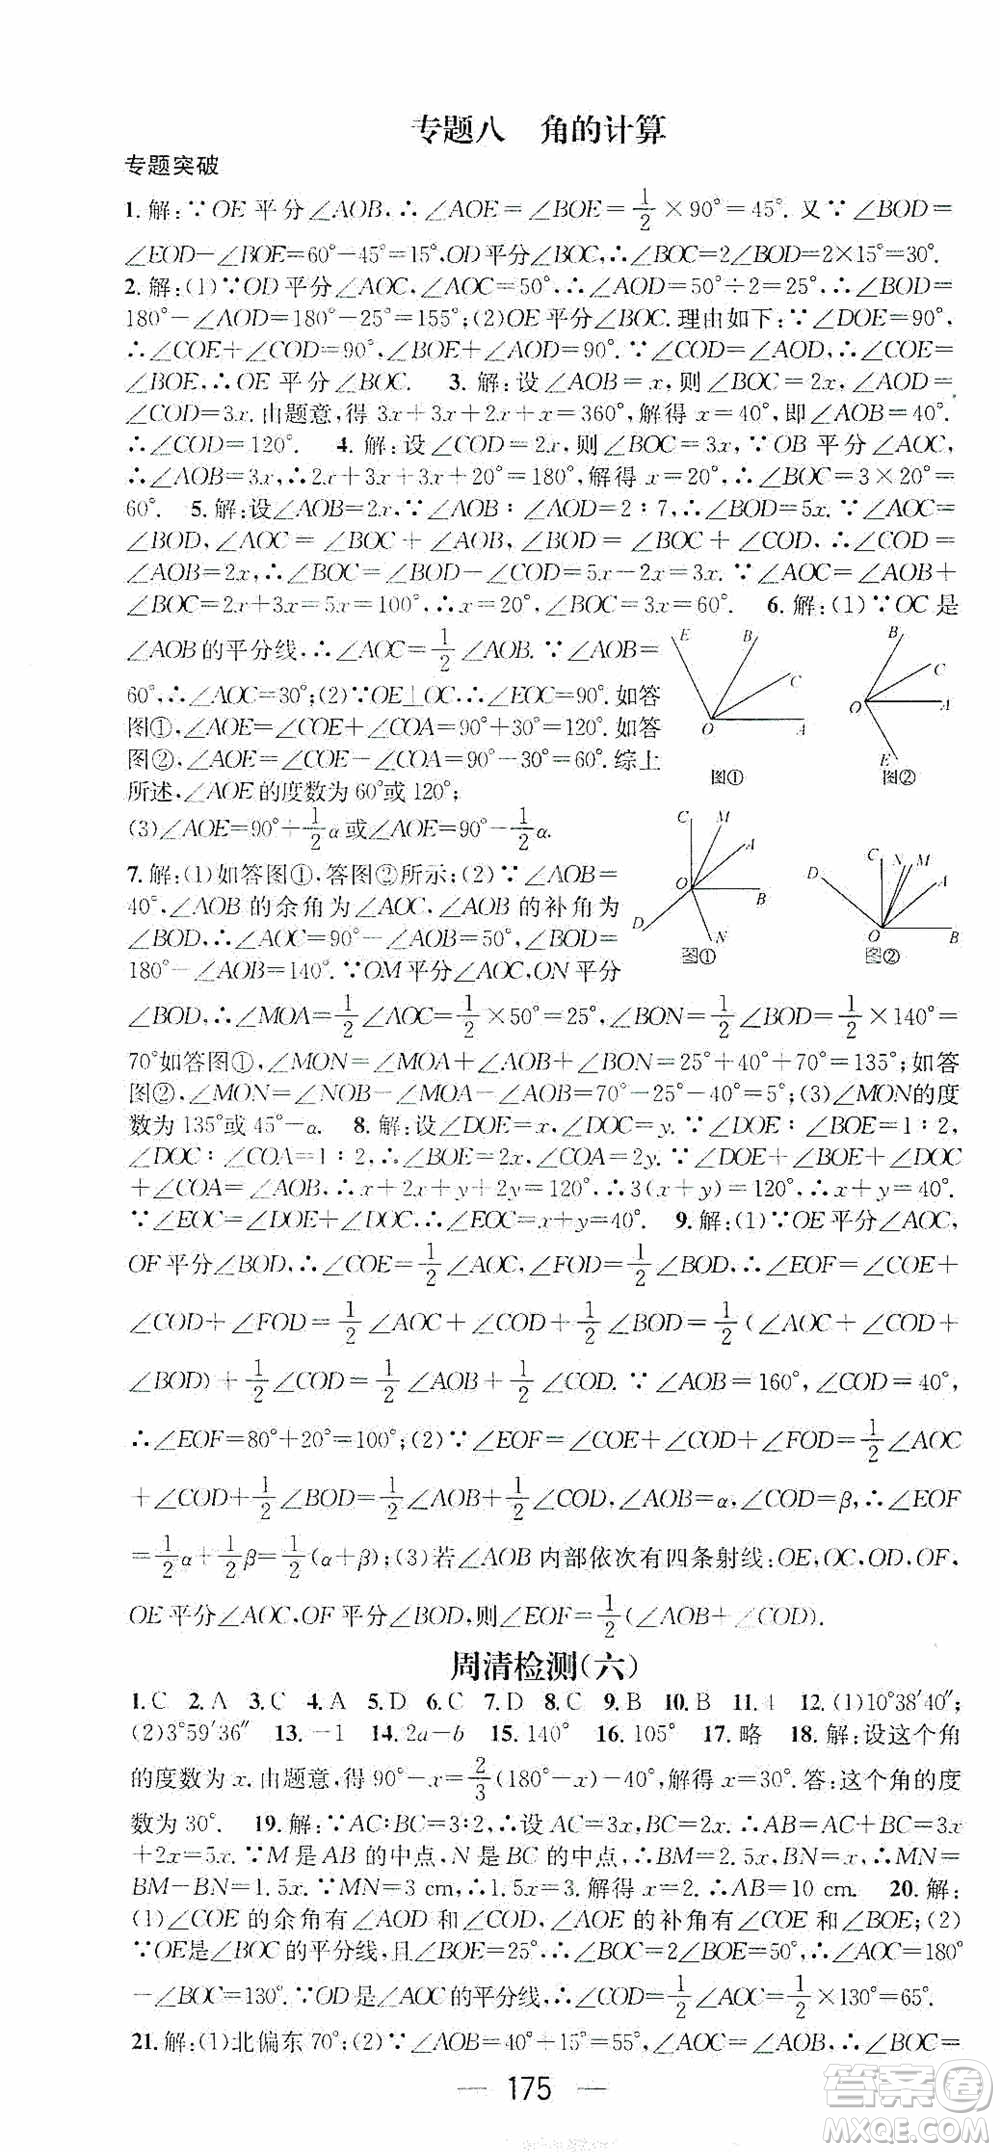 专题八　角的计算
专题突破
1. 解:∵OE平分∠AOB,∴∠AOE=∠BOE=1/2×90°=45°. 又∵∠BOD=
∠EOD-∠BOE=60°-45°=15°,OD平分∠BOC,∴∠BOC=2∠BOD=2×15°=30°.
2. 解:(1)∵OD平分∠AOC,∠AOC=50°,∴∠AOD=50°÷2=25°,∴∠BOD=
180°-∠AOD=180°-25°=155°;(2)OE平分∠BOC.理由如下:∵∠DOE=90°,
∴∠COE+∠COD=90°,∠BOE+∠AOD=90°.∵∠COD=∠AOD,∴∠COE=
∠BOE,∴OE平分∠BOC. 3. 解:设∠AOB=x,则∠BOC=2x,∠AOD=
∠COD=3x.由题意,得3x+3x+2x+x=360°,解得x=40°,即∠AOB=40°.
∴∠COD=120°. 4. 解:设∠COD=2x,则∠BOC=3x,∵OB平分∠AOC,
∴∠AOB=3x,∴2x+3x+3x+20°=180°,解得x=20°,∴∠BOC=3×20°=
60°. 5. 解:设∠AOB=2x,∵∠AOB∶∠AOD=2∶7,∴∠BOD=5x.∵∠AOC=
∠BOD,∠AOC=∠BOC+∠AOB,∠BOD=∠BOC+∠COD,∴∠COD=
∠AOB=2x,∴∠BOC=∠BOD-∠COD=5x-2x=3x.∵∠AOC=∠AOB+
∠BOC=2x+3x=5x=100°,∴x=20°,∠BOC=3x=60°. 6. 解:(1)∵OC是
∠AOB的平分线,∴∠AOC=1/2∠AOB.∵∠AOB=
60°,∴∠AOC=30°;(2)∵OE⊥OC,∴∠EOC=90°.如答
图①,∠AOE=∠COE+∠COA=90°+30°=120°.如答
图②,∠AOE=∠COE-∠COA=90°-30°=60°.综上
所述,∠AOE的度数为60°或120°;
(3)∠AOE=90°+1/2α或∠AOE=90°-1/2α.
E B C O A 图①
B C O A E 图②
7. 解:(1)如答图①,答图②所示;(2)∵∠AOB=
40°,∠AOB的余角为∠AOC,∠AOB的补角为
∠BOD,∴∠AOC=90°-∠AOB=50°,∠BOD=
180°-∠AOB=140°.∵OM平分∠AOC,ON平分
C M A O B D N 图①
D C N M A O B 图②
∠BOD,∴∠MOA=1/2∠AOC=1/2×50°=25°,∠BON=1/2∠BOD=1/2×140°=
70°如答图①,∠MON=∠MOA+∠AOB+∠BON=25°+40°+70°=135°;如答
图②,∠MON=∠NOB-∠MOA-∠AOB=70°-25°-40°=5°;(3)∠MON的度
数为135°或45°-α. 8. 解:设∠DOE=x,∠DOC=y.∵∠DOE∶∠BOE=1∶2,
∠DOC∶∠COA=1∶2,∴∠BOE=2x,∠COA=2y.∵∠DOE+∠BOE+∠DOC+
∠COA=∠AOB,∴x+2x+y+2y=120°,∴3(x+y)=120°,∴x+y=40°.
∵∠EOC=∠DOE+∠DOC,∴∠EOC=x+y=40°. 9. 解:(1)∵OE平分∠AOC,
OF平分∠BOD,∴∠COE=1/2∠AOC,∠FOD=1/2∠BOD,∴∠EOF=∠COE+
∠COD+∠FOD=1/2∠AOC+∠COD+1/2∠BOD=1/2(∠AOC+∠COD+
∠BOD)+1/2∠COD=1/2∠AOB+1/2∠COD.∵∠AOB=160°,∠COD=40°,
∴∠EOF=80°+20°=100°;(2)∵∠EOF=∠COE+∠COD+∠FOD=1/2∠AOC
+∠COD+1/2∠BOD=1/2∠AOB+1/2∠COD,∠AOB=α,∠COD=β,∴∠EOF
=1/2α+1/2β=1/2(α+β);(3)若∠AOB内部依次有四条射线:OE,OC,OD,OF,
OE平分∠AOC,OF平分∠BOD,则∠EOF=1/2(∠AOB+∠COD).
周清检测(六)
1. C 2. A 3. C 4. A 5. D 6. C 7. D 8. C 9. B 10. B 11. 4 12. (1)10°38′40″;
(2)3°59′36″ 13. -1 14. 2a-b 15. 140° 16. 105° 17. 略 18. 解:设这个角
的度数为x.由题意,得90°-x=2/3(180°-x)-40°,解得x=30°.答:这个角的度
数为30°. 19. 解:∵AC∶BC=3∶2,∴设AC=3x,BC=2x.∴AB=AC+BC=3x
+2x=5x.∵M是AB的中点,N是BC的中点,∴BM=2.5x,BN=x,∴MN=
BM-BN=1.5x.∵MN=3 cm,1.5x=3.解得x=2.∴AB=10 cm. 20. 解:
(1)∠COE的余角有∠AOD和∠COD,∠AOE的补角有∠COE和∠BOE;(2)
∵OE是∠BOC的平分线,且∠BOE=25°,∴∠BOC=2∠BOE=50°,∴∠AOC=180°
-∠BOC=130°.∵OD是∠AOC的平分线,∴∠COD=1/2∠AOC=1/2×130°=65°.
21. 解:(1)北偏东70°;(2)∵∠AOB=40°+15°=55°,∠AOC=∠AOB,∴∠AOC=
— 175 —
答案圈
MXQE.COM